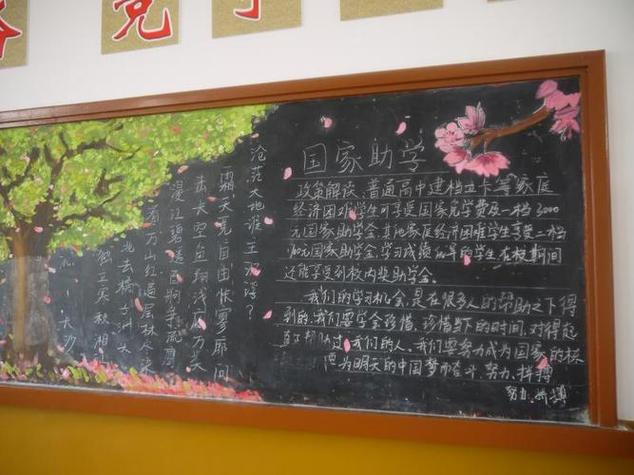 竞
独立寒秋湘
北去橘子洲头
看万山红遍层林尽染
漫江碧透百舸争流鹰
击长空鱼翔浅底万类
霜天竞自由怅寥廓问
沧茫大地谁主沉浮?
国家助学
政策解读 普通高中建档立卡等家庭
经济困难学生可享受国家免学费及一档3000
元国家助学金.其他家庭经济困难学生享受二档
元国家助学金.学习成绩的学生在校期间
还能享受到校内奖助学金.
我们的学习机会.是在很多人的帮助之下得
到的.我们要学会珍惜.珍惜当下的时间.对得起
帮助过我们的人.我们要努力成为国家的栋
为明天的中国梦而奋斗.努力.拼搏
努力.拼搏